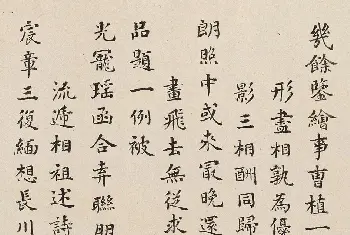 幾餘鑒繪事曹植一
形盡相孰為優
影三相酬同歸
朗照中或来冣晚還
畫飛去無從求
品題一例被
光寵瑶函合弆聯明
流遞相祖述詩
宸章三復緬想長川